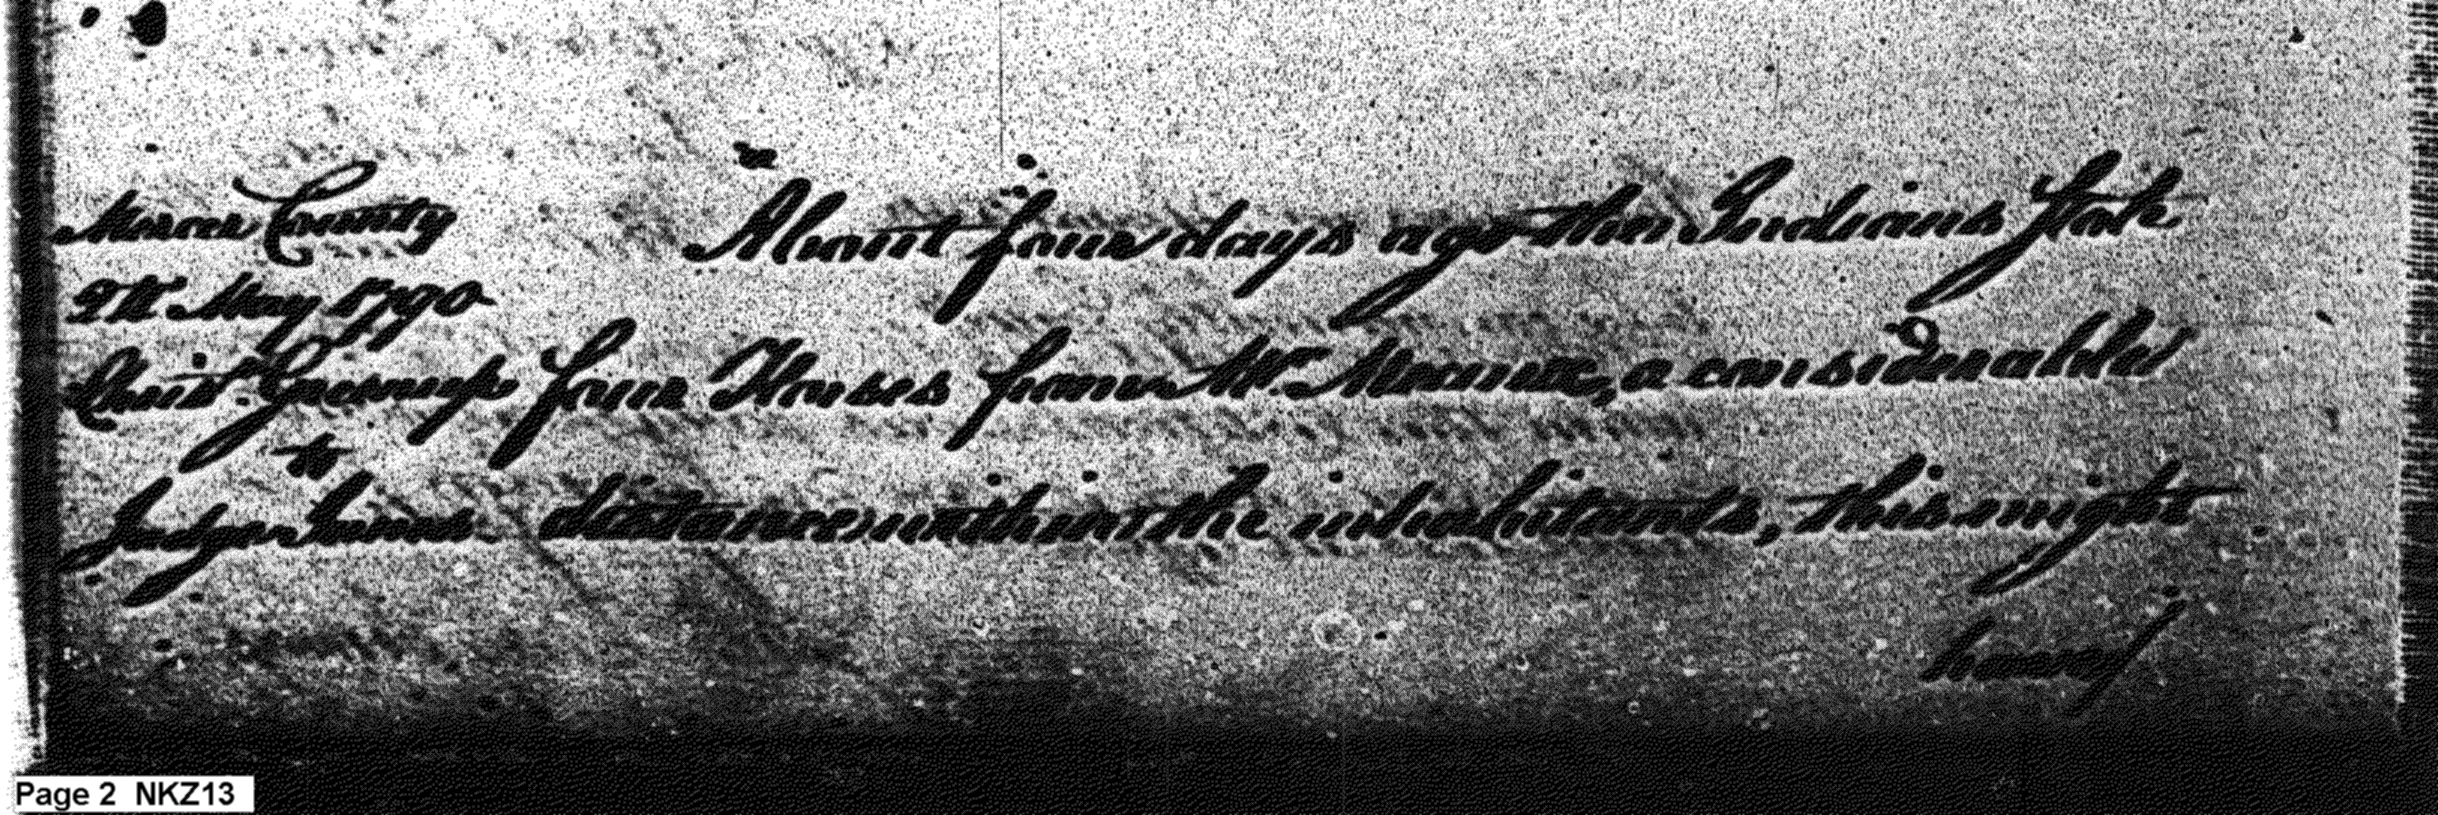 Mercer County About four days ago the Indians stole
9th May 1790
Christ. Greenup four Horses from Mr. Meaux, a considerable
to
Judge Innes. distance within the inhabitants, this night
twenty
Page 2 NKZ13